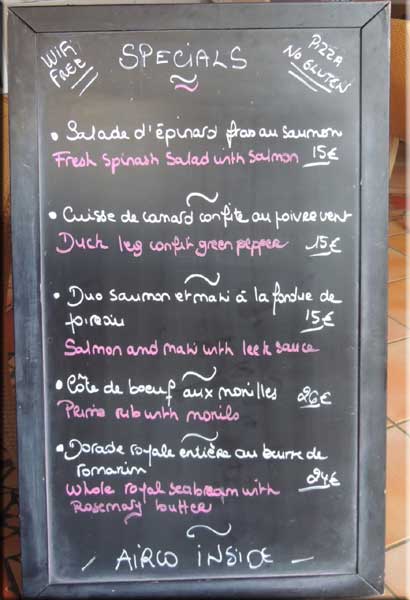 WiFi
FREE
SPECIALS
PIZZA
NO GLUTEN
• Salade d'épinard frais au saumon
Fresh Spinash Salad with Salmon 15€
• Cuisse de canard confite au poivre vert
Duck leg confit green pepper 15€
• Duo saumon et mahi à la fondue de
poireau 15€
Salmon and mahi with leek sauce
• Côte de boeuf aux morilles 26€
Prime rub with morils
• Dorade royale entière au beurre de
romarin 24€
Whole royal seabream with
Rosemary butter
AIRCO INSIDE